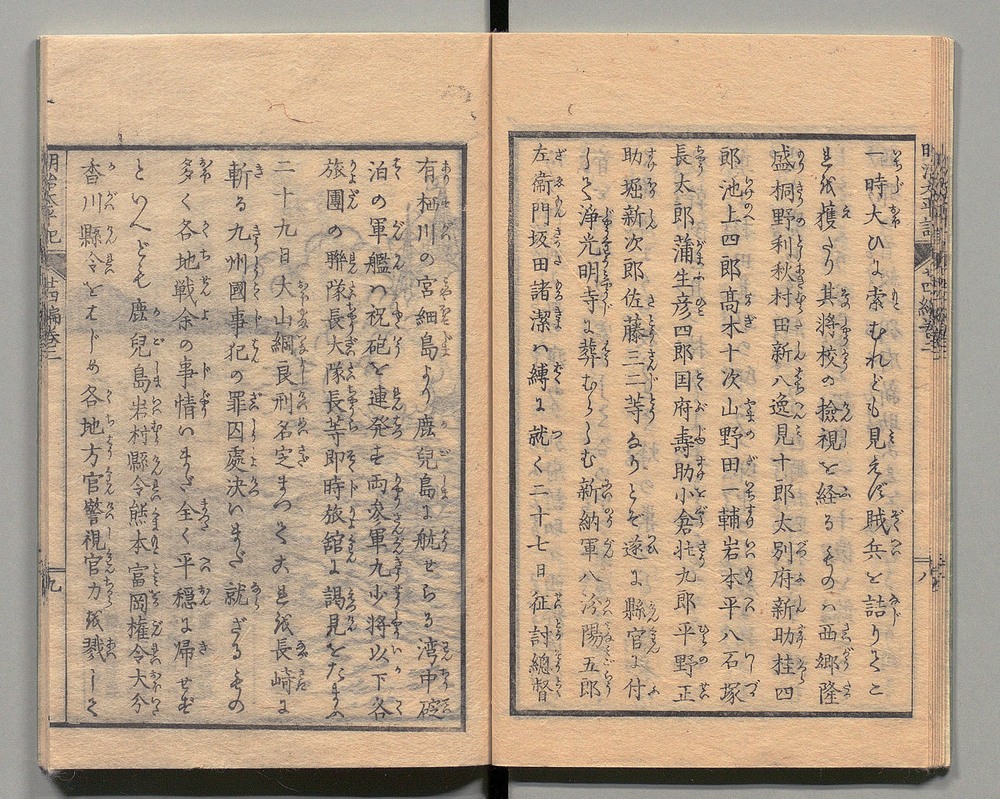 一時大ひに索むれども見えず賊兵を詰りてこ
是を獲たり其將校の撿視を経るものハ西郷隆
盛桐野利秋村田新八逸見十郎太別府新助桂四
郎池上四郎髙木十次山野田一輔岩本平八石塚
長太郎蒲生彦四郎国府壽助小倉壮九郎平野正
助堀新次郎佐藤三二等なりとぞ遂に縣官に付
して浄光明寺に葬むらしむ新納軍八汾陽五郎
左衞門坂田諸潔ハ縛に就く二十七日征討總督
有栖川の宮細島より鹿兒島に航せらる湾中碇
泊の軍艦ハ祝砲を連発す両參軍九少將以下各
旅團の聯隊長大隊長等即時旅舘に謁見をたまふ
二十九日大山綱良刑名定まつて是を長崎に
斬る九州國事犯の罪囚處决いまだ就ざるもの
多く各地戦余の事情いまだ全く平穏に帰せず
といへども鹿兒島岩村縣令熊本富岡権令大分
香川縣令をはじめ各地方官警視官力を戮して
明治太平記
廿四編巻之二
八
九